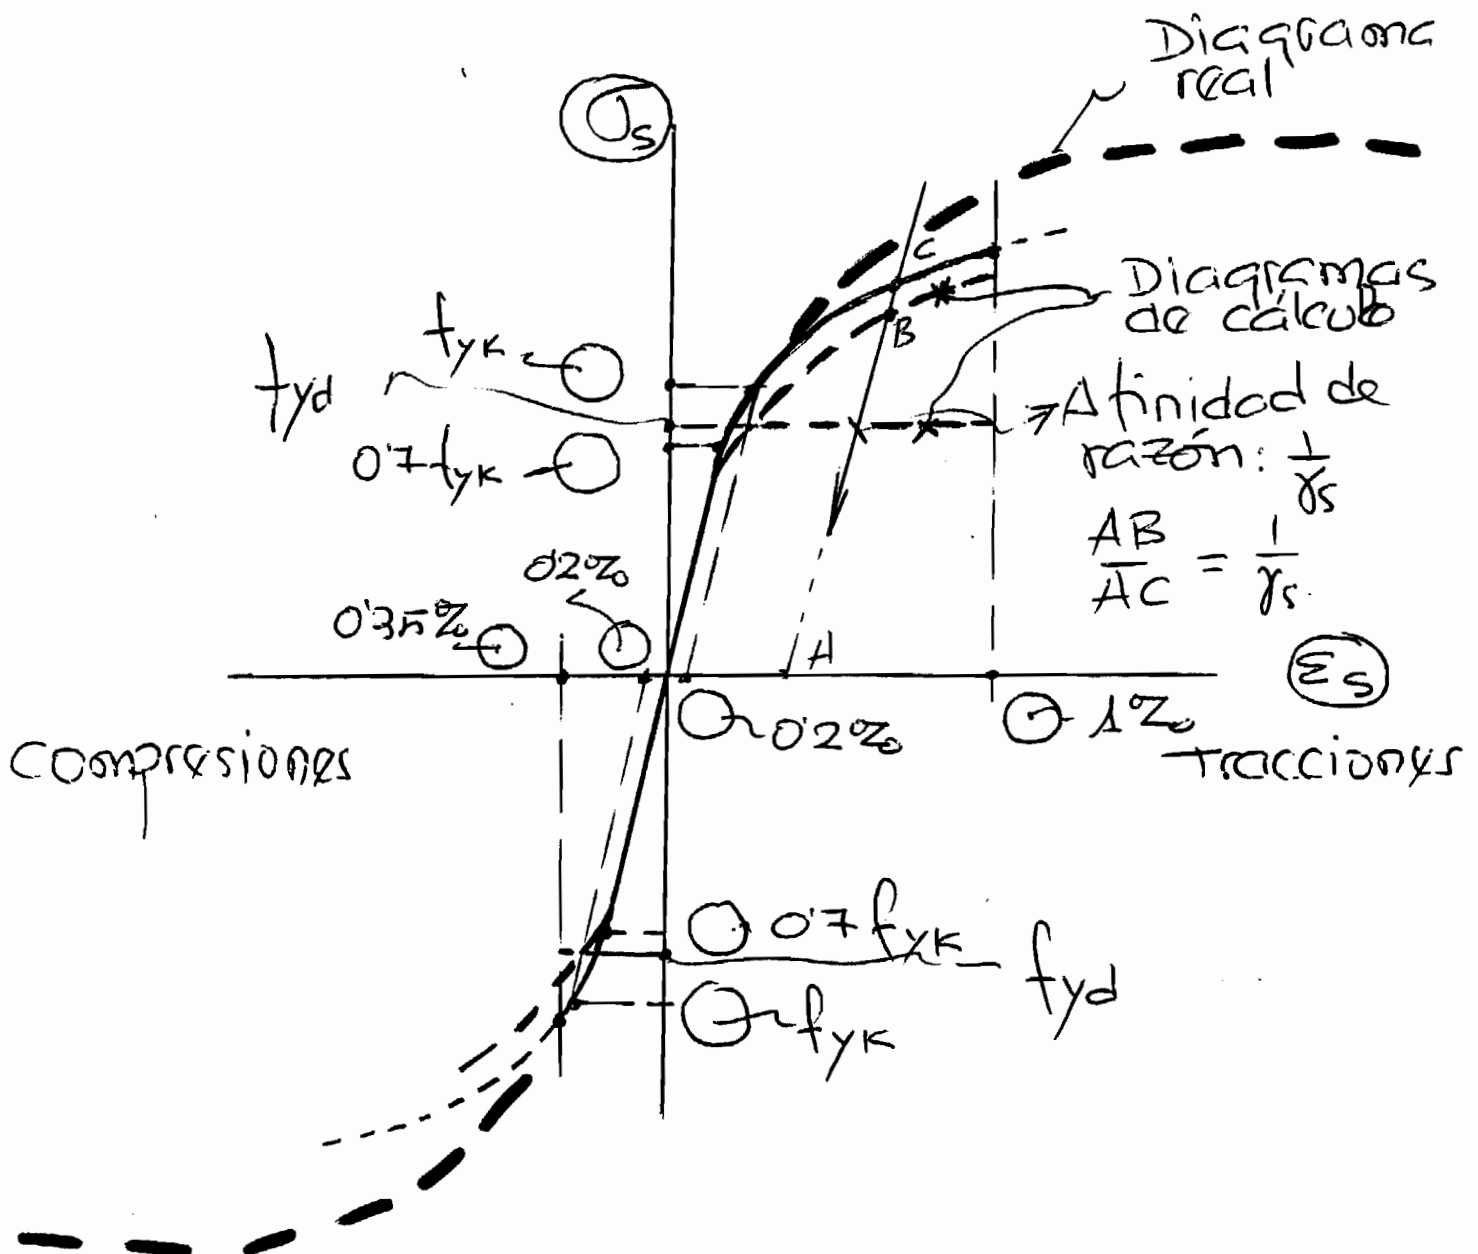 Diagrama
real
σs
C
Diagramas
de cálculo
B
fyk
fyd
0'7 fyk
Afinidad de
razón: 1/γs
AB/AC = 1/γs
0'2%
0'35%
A
εs
0'2%
1%
compresiones
tracciones
0'7 fyk
fyd
fyk